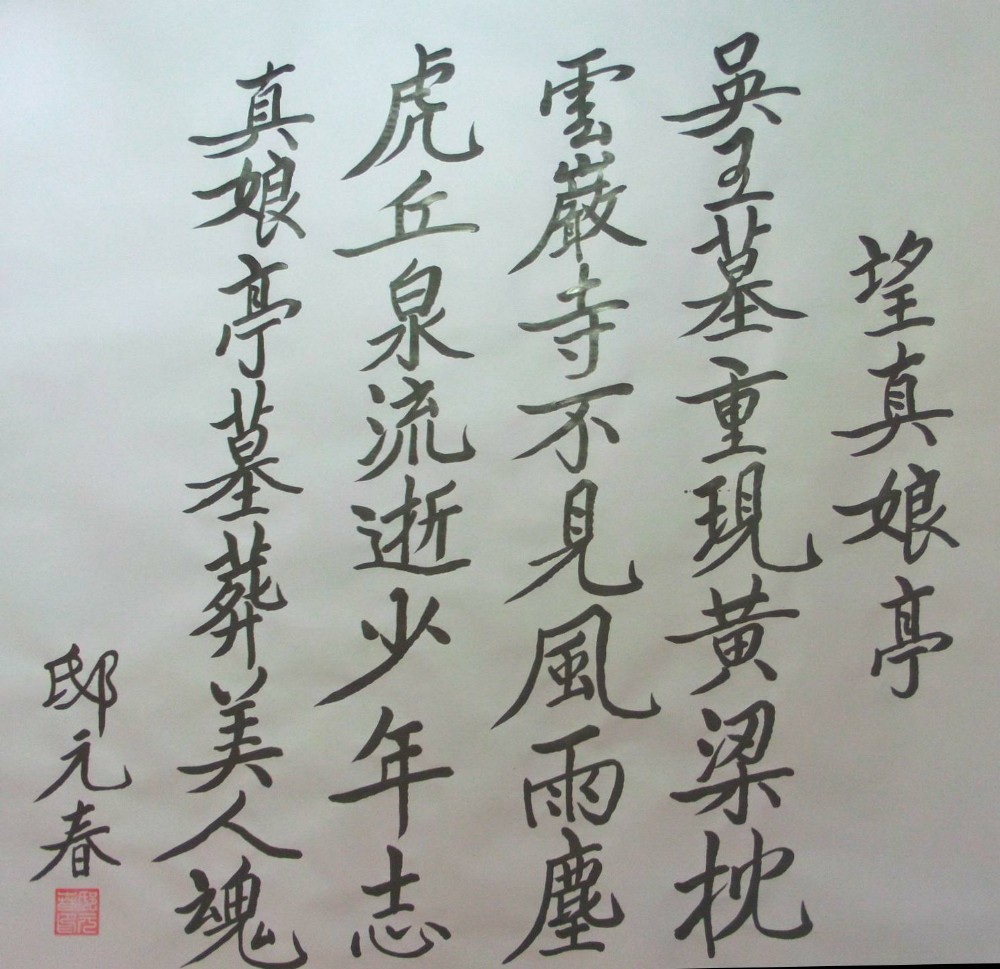 望真娘亭
吳王墓重現黃梁枕
雲巖寺不見風雨塵
虎丘泉流逝少年志
真娘亭墓葬美人魂
邸元春